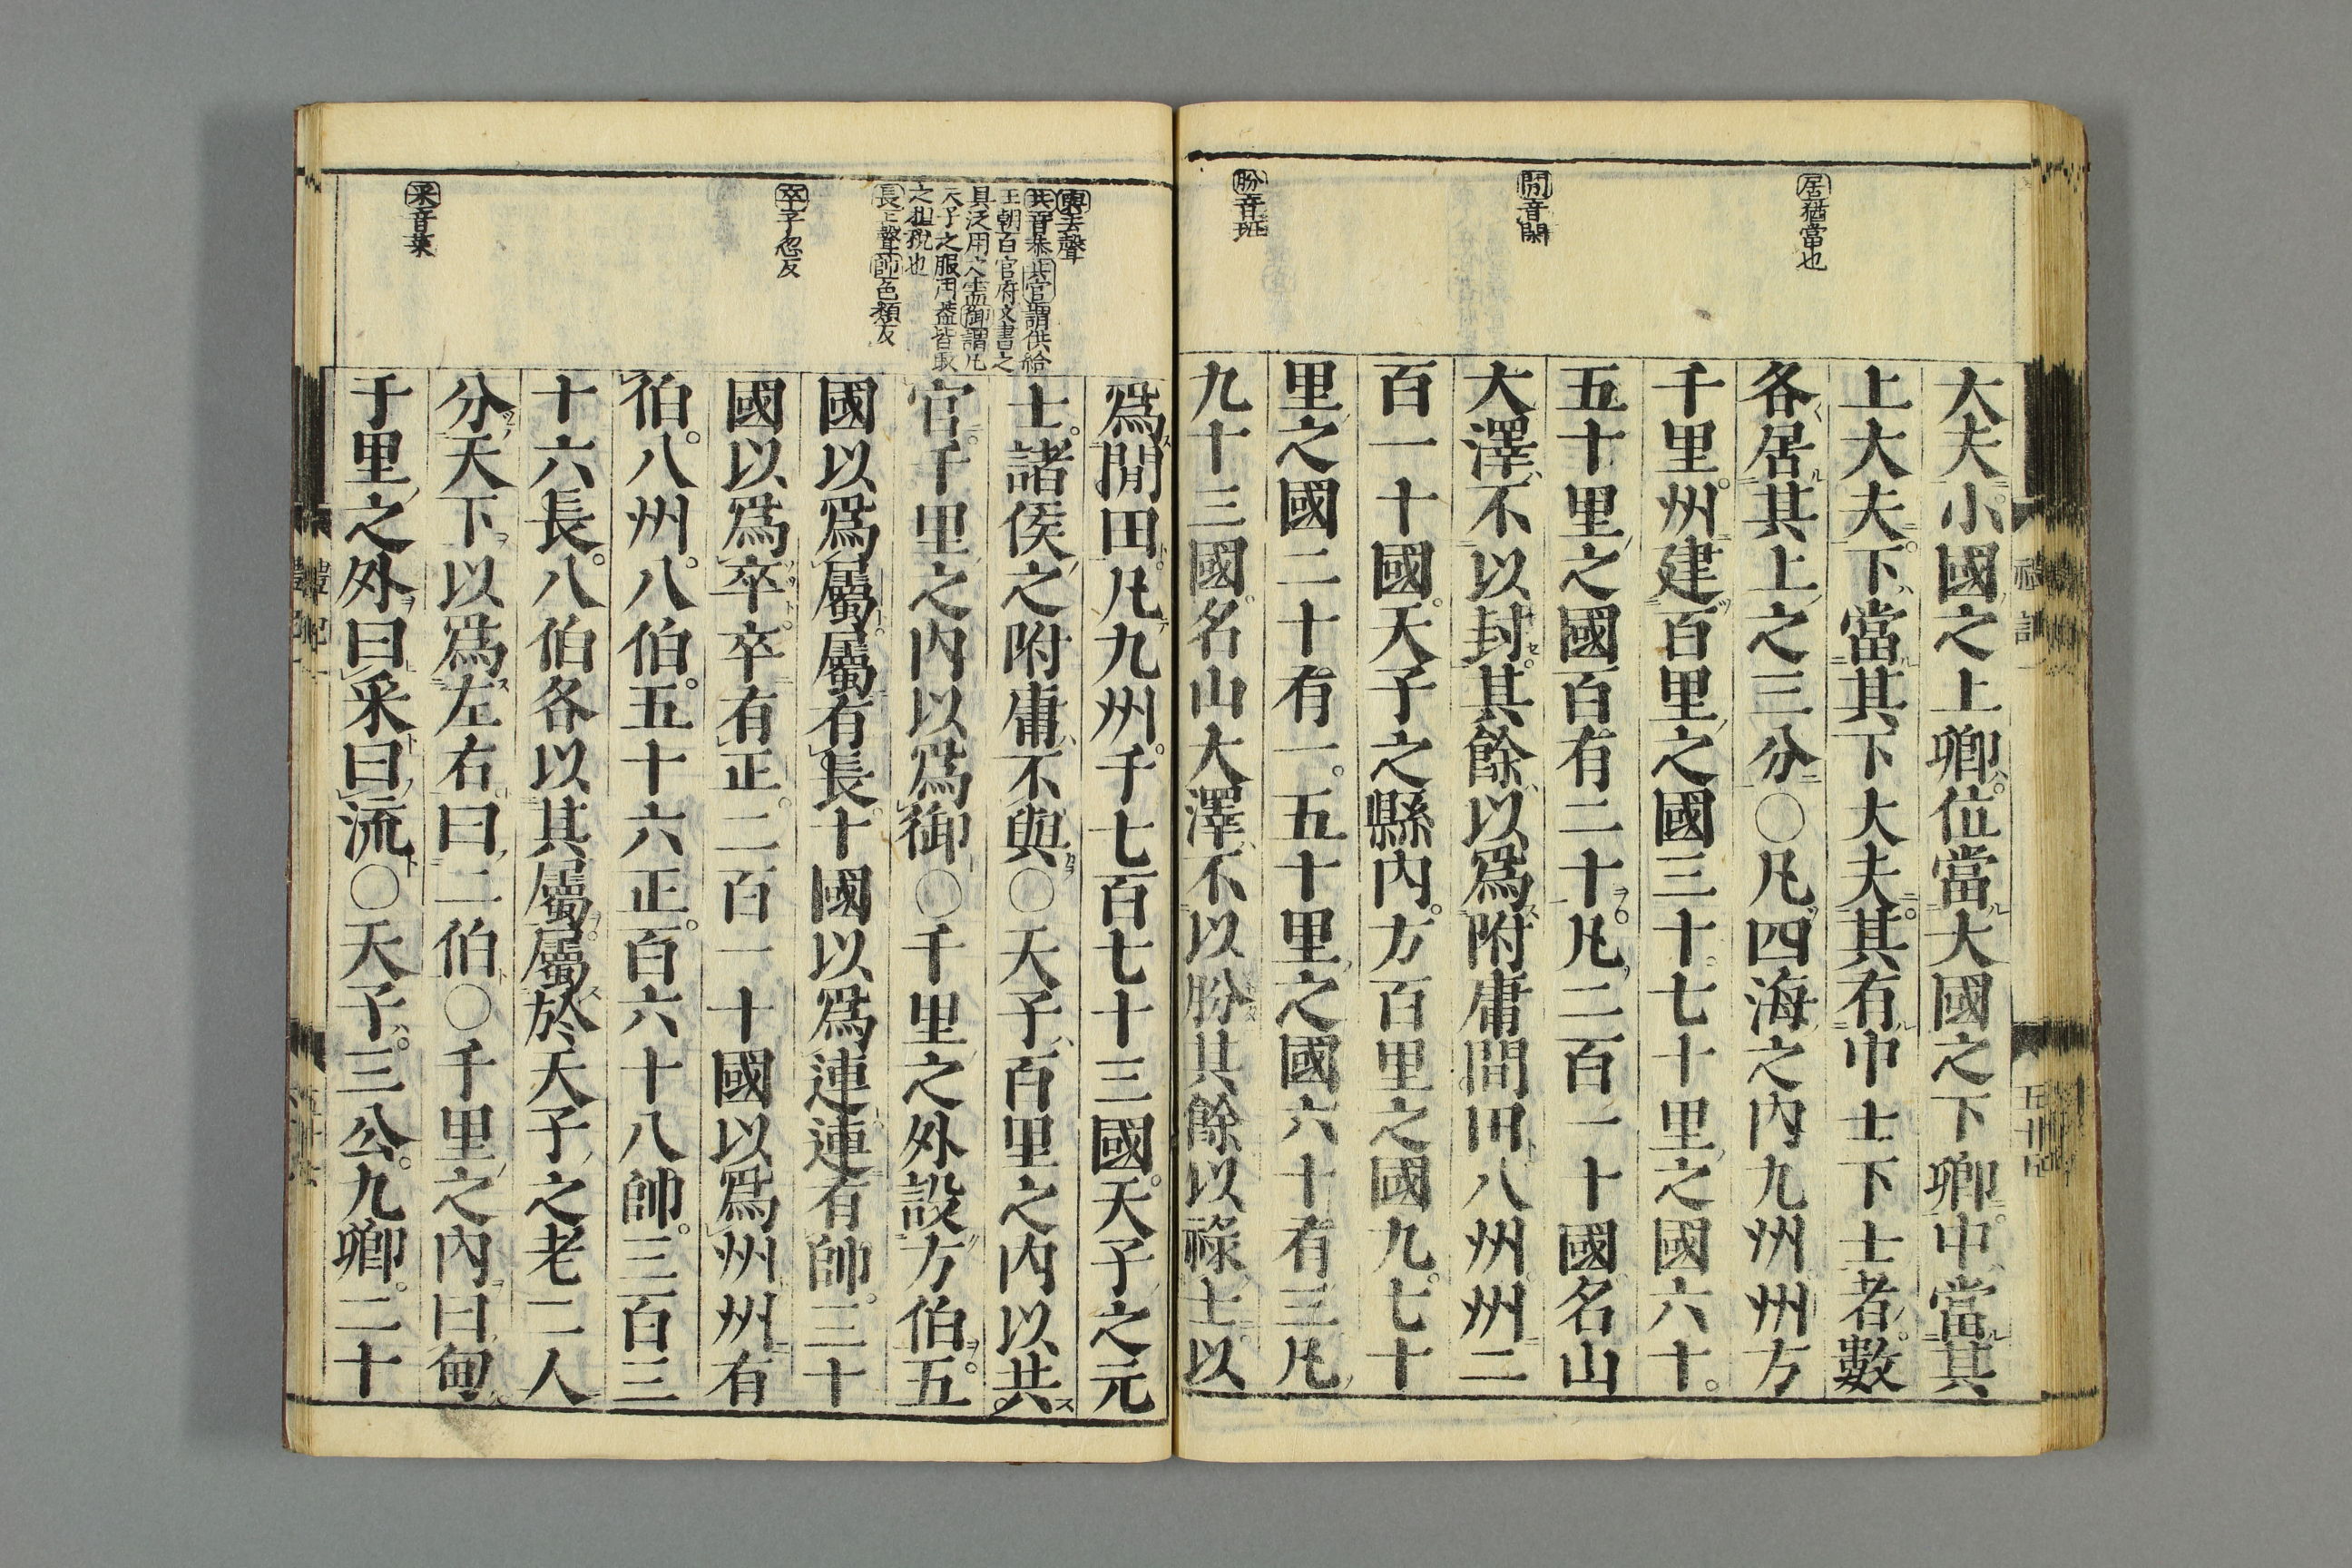 居猶當也
閒音閑
朌音班
大夫小國之上卿位當大國之下卿中當其
上大夫下當其下大夫其有中士下士者數
各居其上之三分○凡四海之內九州州方
千里州建百里之國三十七十里之國六十
五十里之國百有二十凡二百一十國名山
大澤不以封其餘以爲附庸閒田八州州二
百一十國天子之縣內方百里之國九七十
里之國二十有一五十里之國六十有三凡
九十三國名山大澤不以朌其餘以祿士以
與去聲
共音恭共官謂供給
王朝百官府文書之
具泛用之需御謂凡
天子之服用蓋皆取
之租稅也
長上聲帥色類反
卒子忽反
采音菜
爲閒田凡九州千七百七十三國天子之元
士諸侯之附庸不與○天子百里之內以共
官千里之內以爲御○千里之外設方伯五
國以爲屬屬有長十國以爲連連有帥三十
國以爲卒卒有正二百一十國以爲州州有
伯八州八伯五十六正百六十八帥三百三
十六長八伯各以其屬屬於天子之老二人
分天下以爲左右曰二伯○千里之內曰甸
千里之外曰采曰流○天子三公九卿二十
禮記一